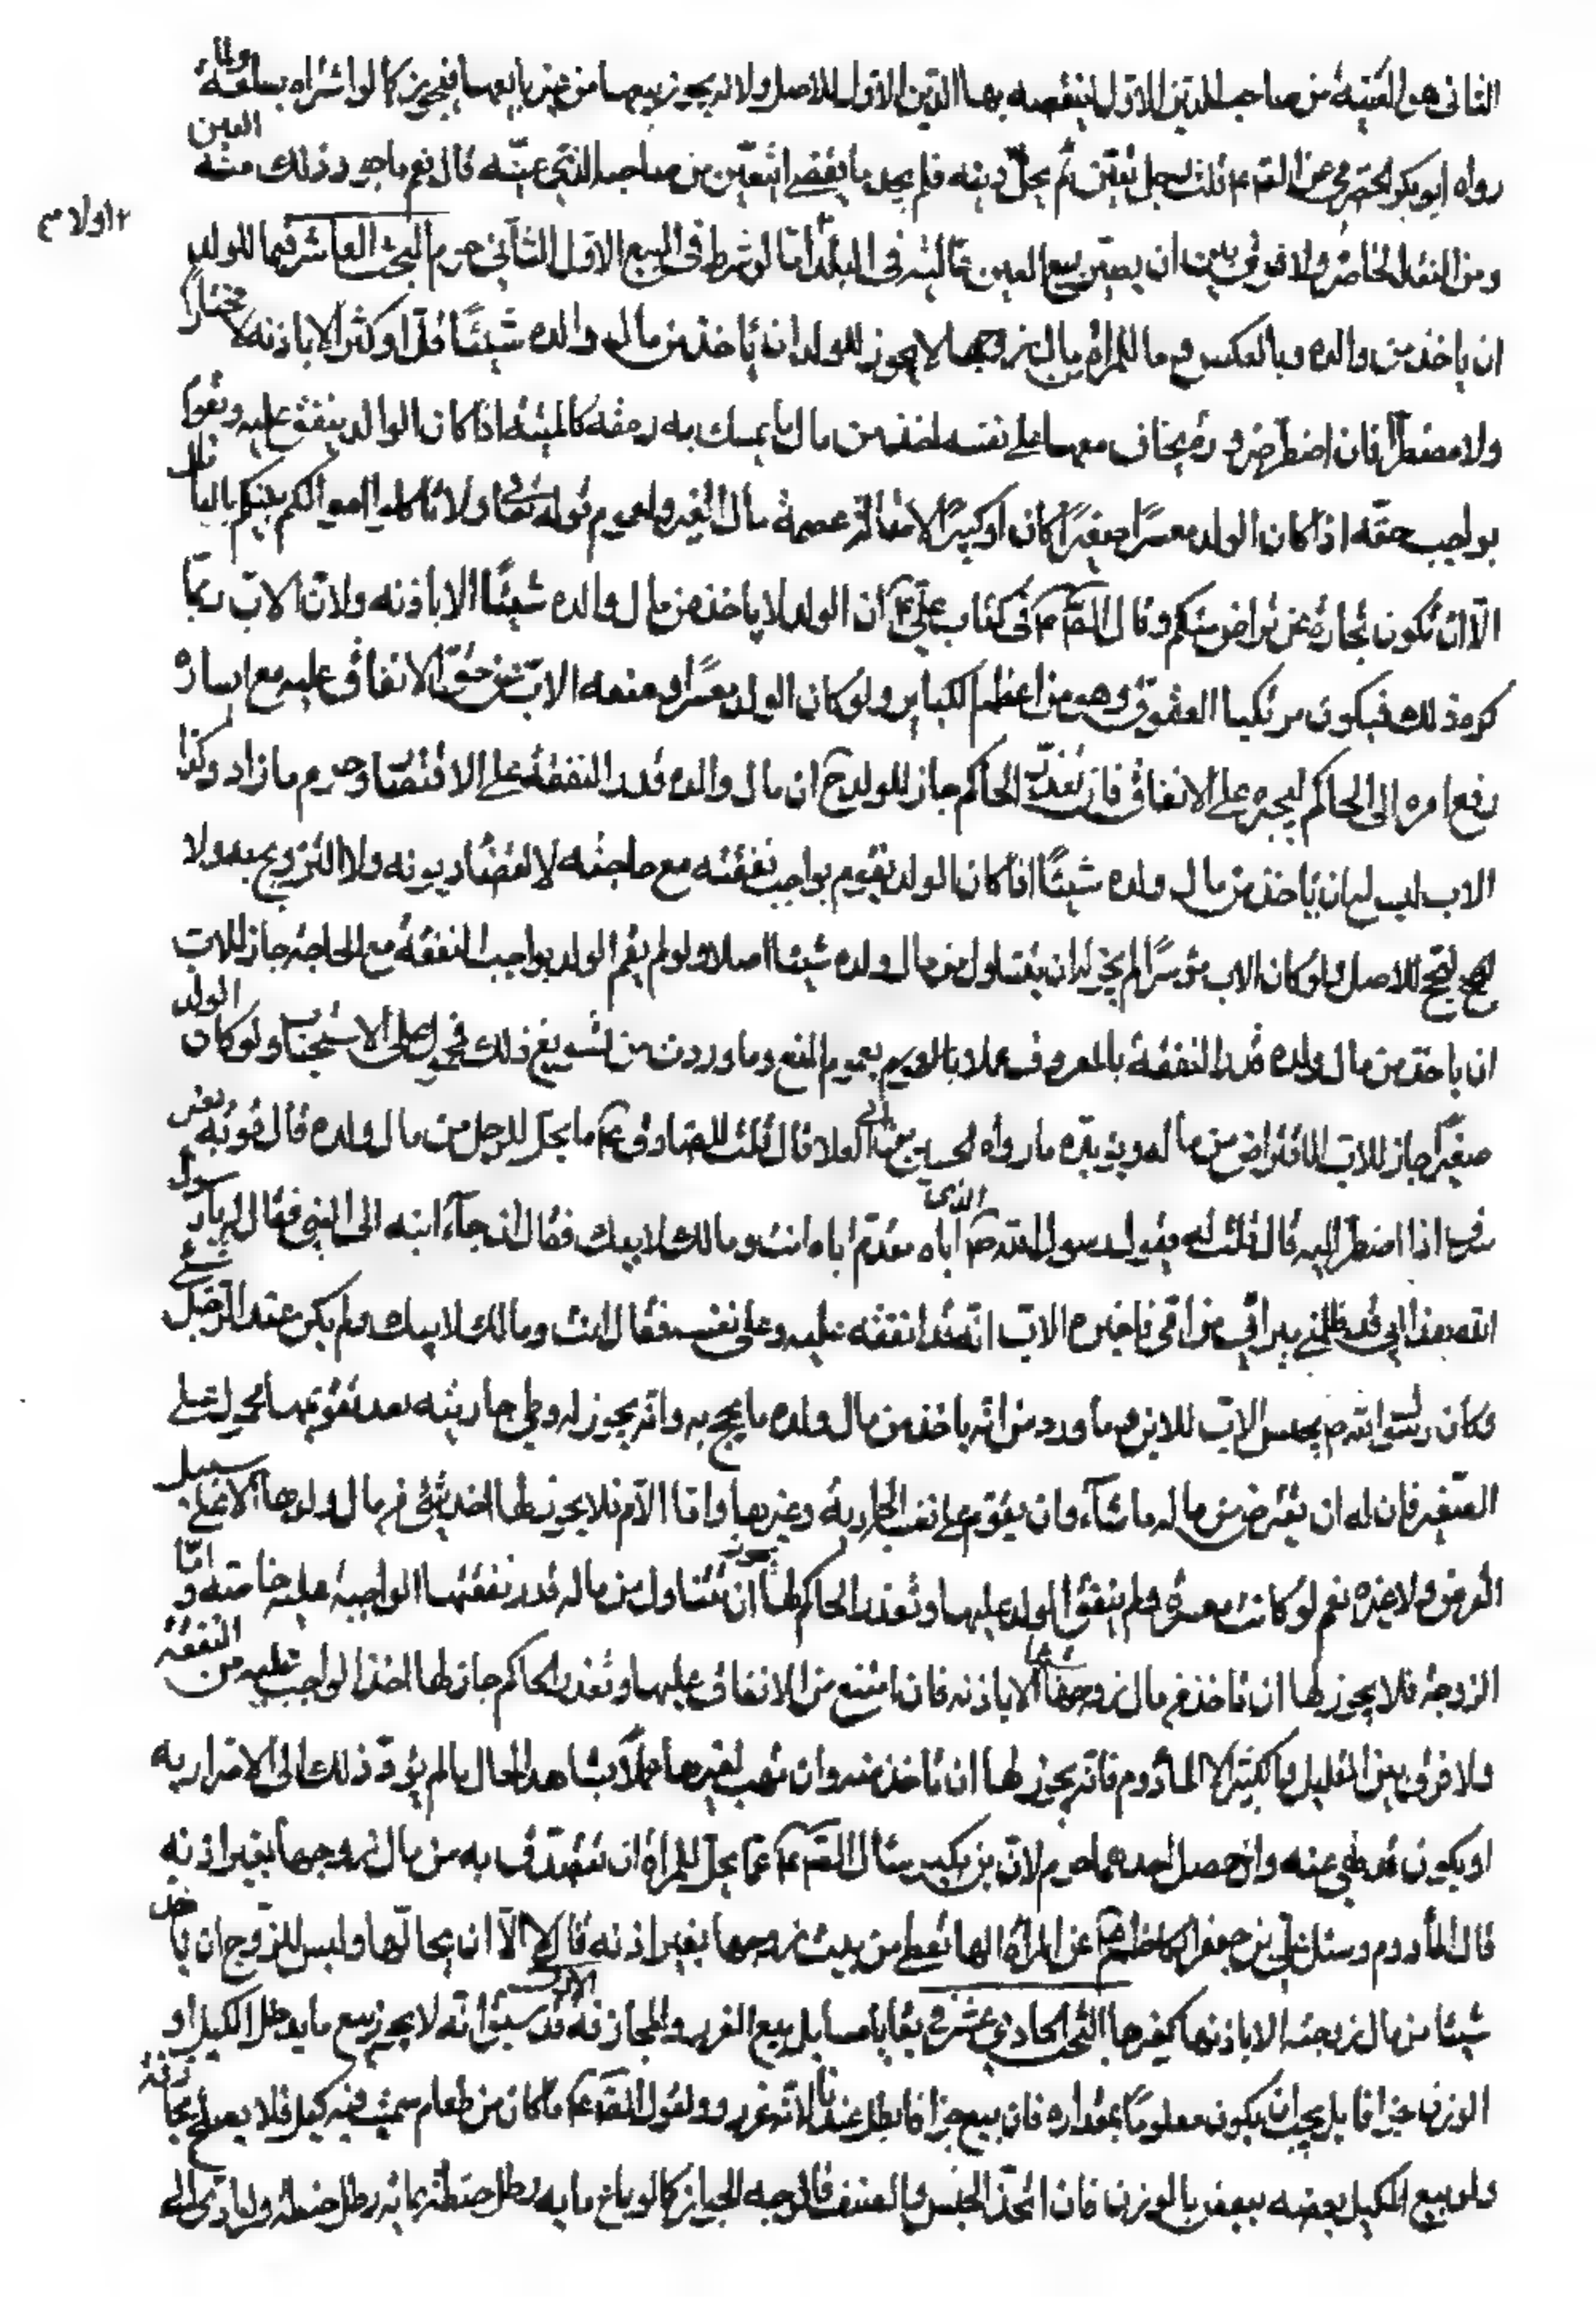 الثانى هو العينة من صاحب الدين الاول ليقضيه بها الدين الاول للاصل ولانه يجوز بيعها من غير بايعها فيجوز كما لو اشتراه بسلعة ولما
رواه ابو بكر الحضرمى عن الصّ ع قلت رجل تعيّن ثم حلّ دينه فلم يجد ما يقضى ايتعيّن من صاحبه الذى عيّنه قال نعم ماجور وذلك مثله العين
٢ اولا م
ومن النقد الحاضر ولا فرق بين ان يصير بيع العين ثانيته فى البلد امّا لو شرط فى البيع الاول الثانى حرم البحث العاشر فيما للولد
ان ياخذ من والده وبالعكس وما للمراة من مال زوجها لا يجوز للولد ان ياخذ من مال والده شيئًا قلّ او كثر الا باذنه لا مختارًا
ولا مضطرًا فان اضطر ضرورة يخاف معها على نفسه اخذ من مال ما يمسك به رمقه كالميتة اذا كان الوالد ينفق عليه ويقوم
بواجب حقّه اذا كان الولد معسرًا صغيرًا كان او كبيرًا لاصالة عصمة مال الغير ولعموم قوله تعالى ولا تاكلوا اموالكم بينكم بالباطل
الّا ان تكون تجارة عن تراض منكم وقال الصّ ع فى كتاب على ع ان الولد لا ياخذ من مال والده شيئًا الا باذنه ولان الاب ربّما
كره ذلك فيكون مرتكبا العقوق وهو من اعظم الكباير ولو كان الولد معسرًا ومنعه الاب من حق الانفاق عليه مع ايساره
رفع امره الى الحاكم ليجبره على الانفاق فان تعذّر الحاكم جاز للولد ح ان مال والده قدر النفقة على الاقتصاد وحرم ما زاد وكذا
الاب ليس له ان ياخذ من مال ولده شيئًا اذا كان الولد يقوم بواجب نفقته مع حاجته لا لقضاء ديونه ولا التزويج به ولا
ليحج للاصل ولو كان الاب موسرًا لم يجز له ان يتناول من مال ولده شيئا اصلا ولو لم يقم الولد بواجب النفقة مع الحاجة جاز للاب
ان ياخذ من مال ولده قدر النفقة بالمعروف عملا بالعموم بعموم المنع وما وردت من تسويغ ذلك فمحمول على الاستحباب ولو كان الولد
صغيرًا جاز للاب الاقتراض من ماله ويؤيّده ما رواه الحسين بن ابى العلا قال قلت للصادق ع ما يحل للرجل من مال ولده قال قوته بغير
سرف اذا اضطر اليه قال قلت له فقول رسول الله ص الذى اتاه فقدّم اباه انت ومالك لابيك فقال انه جآء ابنه الى النبى فقال له يا رسول
الله هذا ابى قد ظلمنى ميراثى من امّى فاخبره الاب انه قد انفقه عليه وعلى نفسه فقال انت ومالك لابيك ولم يكن عند الرجل شئ
فكان رسول الله ص يحبس الاب للابن وما ورد من انه ياخذ من مال ولده ما يحج به وانه يجوز له وطى جاريته بعد تقويمها محمول على
الصّغير فان له ان يقترض من ماله ما شآء وان يقوّم على نفسه الجارية وغيرها وامّا الامّ فلا يجوز لها اخذ شئ من مال ولدها الا على سبيل
القرض ولا غيره نعم لو كانت معسرة ولم ينفق الولد عليها وتعذر الحاكم يجوز لها ان تتناول من ماله قدر نفقتها الواجبة عليه خاصته وامّا
الزوجة فلا يجوز لها ان تاخذ من مال زوجها شيئا الا باذنه فان امتنع من الانفاق عليها وتعذر الحاكم جاز لها اخذ الواجب عليه من النفقة
ولا فرق بين القليل والكثير الا المأدوم فانه يجوز لها ان تاخذ منه وان تهب لغيرها عملا بشاهد الحال ما لم يؤدّ ذلك الى الاضرار به
او يكون قد نهى عنه وان حصل احدهما حرم لان بن بكير سئال الصّ ع عمّا يحل للمراة ان تتصدّق به من مال زوجها بغير اذنه
قال المأدوم وسئل على بن جعفر الكاظم ع عن المراة لها تعطى من بيت زوجها بغير اذنه قال لا الّا ان يحالّها وليس للزوج ان ياخذ
شيئا من مال زوجته الا باذنها كغيرها البحث الحادى عشر فى بقايا مسايل بيع الغرر والمجازفة قد سبق انه لا يجوز بيع ما يدخل الكيل او
الوزن جزافا بل يجب ان يكون معلومًا بمقداره فان بيع جزافا بطل عندنا لانه غرر ولقول الصّ ع ما كان من طعام سميت فيه كيل فلا يصلح مجازفة
ولو بيع المكيل بعضه ببعض بالوزن فان اتحد الجنس والصنف فالوجه الجواز كما لو باع مايه رطل حنطة بمايه رطل حنطة